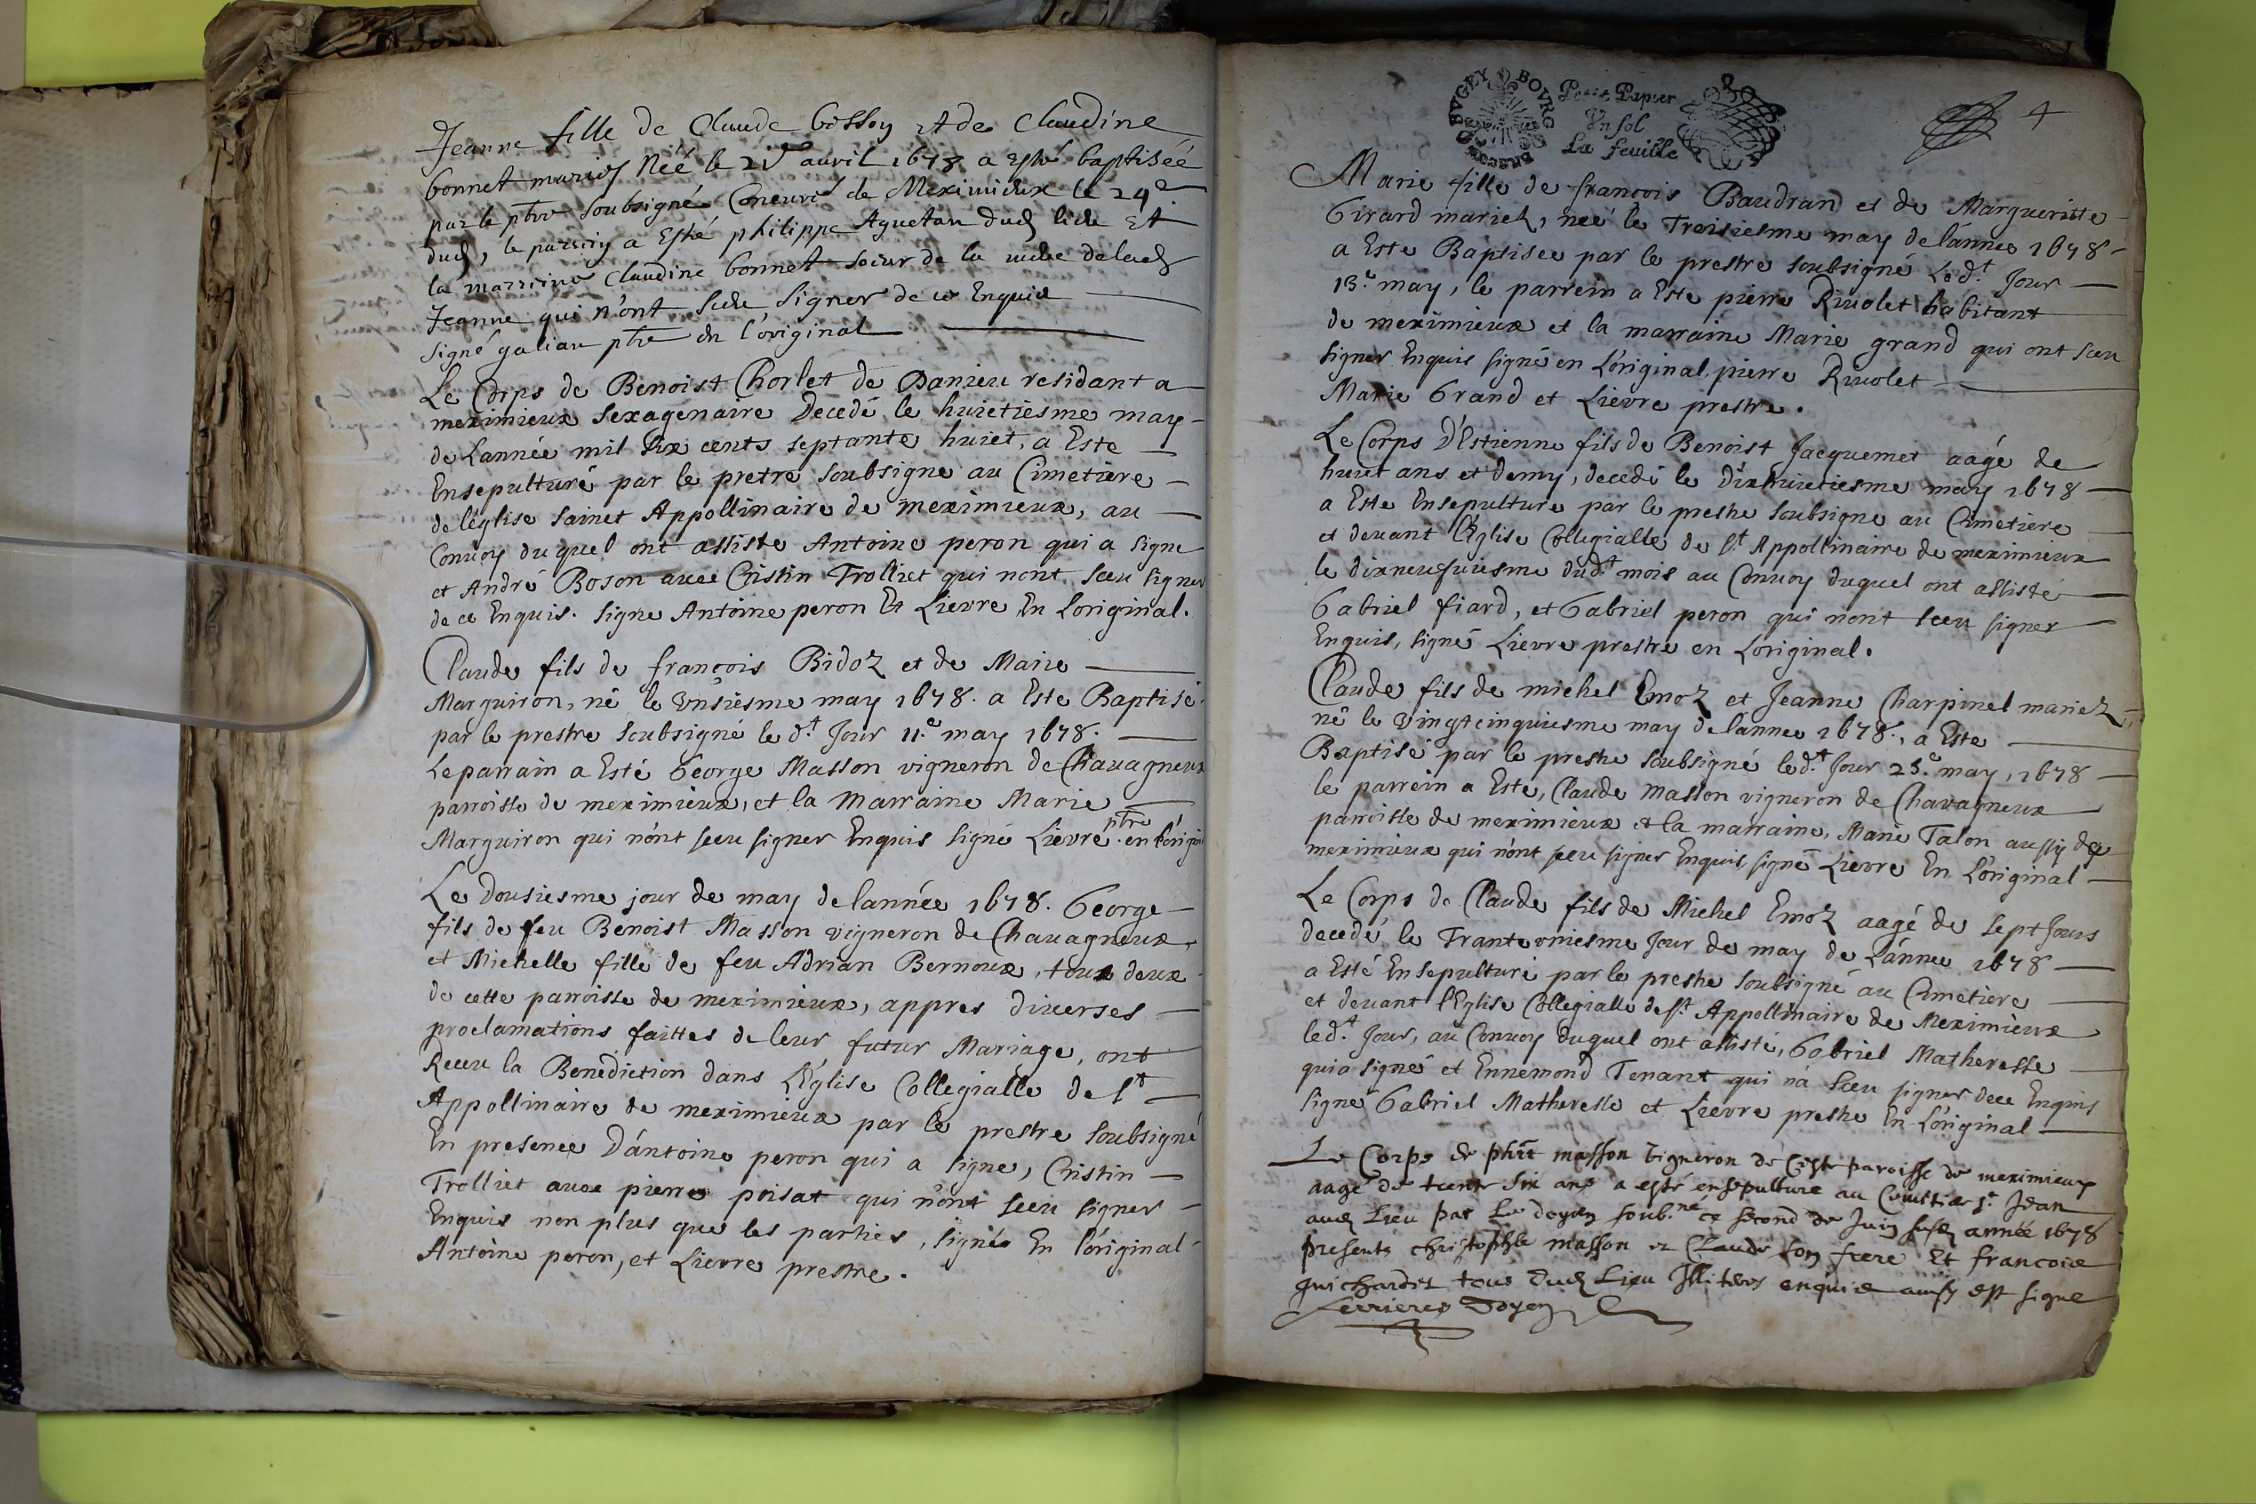 Jeanne fille de Claude bosson et de Claudine
bonnet mariez Née le avril 1678 a esté baptisée
par le ptre soubsigné de Meximieux le 24e
dud, le parrein a Esté philippe Aguetan dud lieu Et
la marrine Claudine bonnet soeur de la
Jeanne qui n'ont sceu signer de ce Enquis
signé galian ptre en l'original
Le Corps de Benoist Chorlet de Danieu residant a
meximieux sexagenaire Decedé le huictiesme may
de Lannée mil six cents septante huict, a Este
Ensepulturé par le pretre soubsigne au Cimetiere
de léglise sainct Appollinaire de meximieux, au
Convoy du quel ont assiste Antoine peron qui a signe
et André Boson avec Cristin Trolliet qui nont sceu signer
de ce Enquis. signe Antoine peron Et Lievre En Loriginal.
Claude fils de françois Bidoz et de Marie
Marguiron, né le Unsiesme may 1678. a Este Baptisé
par le prestre soubsigné le d.t Jour 11.e may 1678.
Le parrain a Esté George Masson vigneron de Chavagneux
parroisse de meximieux, et la Marraine Marie
Marguiron qui n'ont sceu signer Enquis signé Lievre ptre en l'origin
Le Dousiesme jour de may de lannée 1678. George
fils de feu Benoist Masson vigneron de Chavagneux
et Michelle fille de feu Adrian Bernoux, tous deux
de cette parroisse de meximieux, appres diverses
proclamations faittes de leur futur Mariage, ont
Receu la Benediction dans L'Église Collegialle de St
Appollinaire de meximieux par le prestre soubsigné
En presence D'antoine peron qui a signe, Cristin
Trolliet avec pierre poisat qui n'ont sceu signer
Enquis non plus que les parties, signée En l'original
Antoine peron, et Lievre prestre.
BVGEY BOVRG BRESSE
Petit Papier
Un sol
La feuille
4
Marie fille de françois Baudrand et de Margueritte
Girard mariez, née le Troisiesme may de lánnee 1678
a Este Baptisee par le prestre soubsigné Led.t Jour
13.e may, le parrein a Este pierre Rivolet habitant
de meximieux et la marraine Marie grand qui ont sceu
signer Enquis signé en L'original pierre Rivolet
Marie Grand et Lievre prestre.
Le Corps D'Estienne fils de Benoist Jacquemet aagé de
huict ans et demy, decedé le Dixhuictiesme may 1678
a Este Ensepulture par le prestre soubsigne au Cimetiere
et devant l'Église Collegialle de St Appollinaire de meximieux
le dixneufviesme dud.t mois au Convoy duquel ont assisté
Gabriel fiard, et Gabriel peron qui nont sceu signer
Enquis, signé Lievre prestre en Loriginal.
Claude fils de michel Emoz et Jeanne Charpinel mariez
né le vingtcinquiesme may de lannee 1678., a Este
Baptisé par le prestre soubsigné led.t Jour 25.e may, 1678
le parrein a Este, Claude masson vigneron de Chavagneux
parroisse de meximieux et la marraine, Marie Talon aussy de
meximieux qui n'ont sceu signer Enquis, signé Lievre En L'original
Le Corps de Claude fils de Michel Emoz aagé de sept Jours
decedé le Trante oniesme Jour de may de Lánnee 1678
a Esté Ensepulturé par le prestre soubsigné au Cimetiere
et devant l'Église Collegialle de St Appollinaire de Meximieux
led.t Jour, au Convoy duquel ont assisté, Gabriel Matheresse
qui a signé et Ennemond Tenant qui n'a sceu signer dece Enquis
signé Gabriel Matheresse et Lievre prestre En L'original
Le Corps de masson vigneron de Ceste paroisse de meximieux
aagé de trente six ans a esté ensepulture au St Jean
aud Lieu par Le doyen soub.né ce second de Juin année 1678
presents christophle masson et Claude son frere Et francois
guichardet tous dud Lieu Illiteres enquis ainsy est signe
ferrieres Doyen